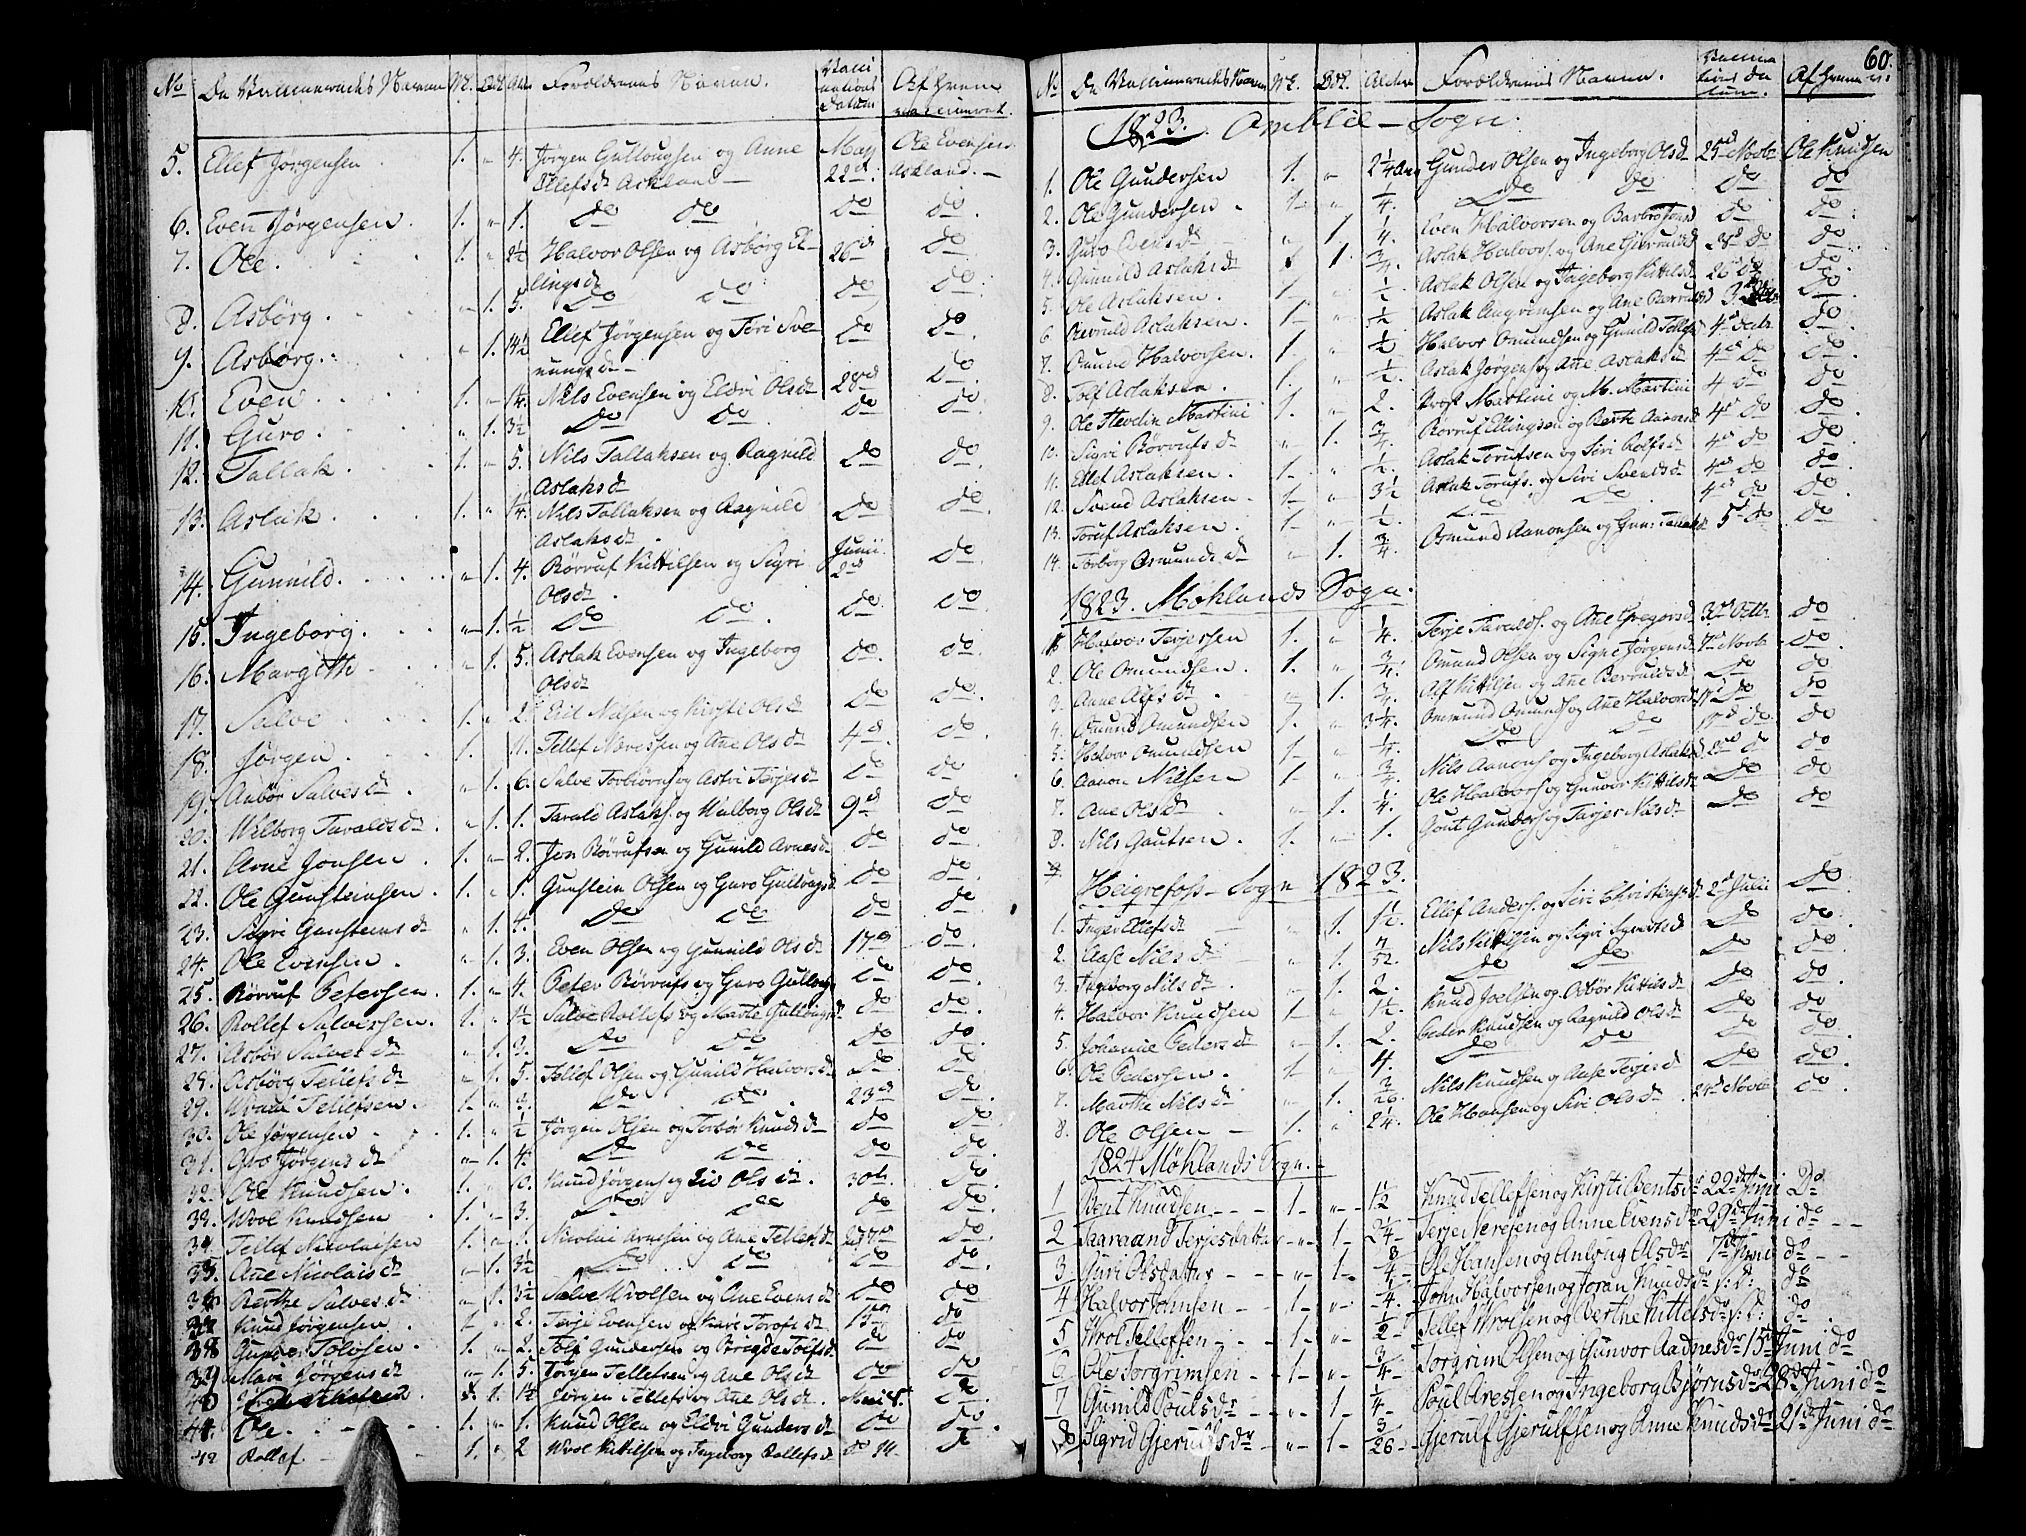 No De Vaccineredes Navne M. Qvk. Alder Forældrenes Navne. Vacci
nations
Datum Af hvem
vaccineret.
5. Ellef Jørgensen 1. " 4. Jørgen Gullougsen og Anne May Ole Evensen
Ellefs dr Askland 22d. Askland.
6. Even Jørgensen. 1. " 1. Do Do Do Do.
7. Ole. 1. " 2½ Halvor Olsen og Asbørg El- 26d Do
lings dr
8. Asbörg. " 1. 5. Do Do Do Do.
9. Asbørg. " 1. 4½ Ellef Jørgensen og Siri Sve Do Do.
nungs dr
10. Even 1. " ¼ Nils Evensen og Eldri Ols dr 28d Do.
11. Guro. " 1. 3½ Do Do Do Do.
12. Tallak. 1. " 5. Nils Tallaksen og Ragnild Do Do.
Aslaks dr
13. Aslak. 1. " ¼ Nils Tallaksen og Ragnild Do Do
Aslaks dr.
14. Gunnild. " 1. 4. Rørruf Kittilsen og Sigri Junii 2d Do
Ols dr.
15. Ingeborg. " 1. ½ Do Do Do. Do
16. Margithe " 1. 5. Aslak Evensen og Ingeborg Do. Do.
Ols dr
17. Salve 1. " 2. Nilsen og Kirsti Ols dr Do Do.
18. Jørgen. 1. 11. Tellef og Ane Ols dr 4d. Do.
19. Anbør Salves dr. " 1. 6. Salve Torbiørns og Astri Terjes dr Do Do
20. Wilborg Taralds dr. " 1. 1. Tarald Aslaks. og Walborg Ols dr 9d Do
21. Arne Jonsen. 1. " 2. Jon Rørrufsen og Gunild Arnes dr Do Do.
22. Ole Gunsteinsen. 1. " 1. Gunstein Olsen og Guro Gullougs d. Do Do.
23. Sigri Gunsteins dr " 1. 4. Do Do Do Do
24. Ole Evensen. " 1. 3. Even Olsen og Gunnild Ols dr 17d Do.
25. Rørruf Petersen. 1. " 4. Peter Rørrufs og Guro Gulloug Do Do.
26. Rollef Salversen. 1. " 1½ Salve Rollefs og Marte Gullougs dr Do Do.
27. Asbør Salves dr " 1. 3. Do Do Do Do.
28. Asbørg Tellefs dr " 1. 5. Tellef Olsen og Gunild Halvors dr Do Do
29. Wraal Tellefsen. 1. " Do Do 23d Do.
30. Ole Jørgensen 1. " ½ Jørgen Olsen og Torbør Knuds dr Do Do
31. Jørgens dr " 1. 4. Do Do Do Do.
32. Ole Knudsen. 1. " Knud Jørgensen og Liv Ols dr. 30t. Do.
33. Wrol Knudsen 1. " 3. Do Do Do Do.
34. Tellef Nicolaisen 1. " Nicolai Arnesen og Ane Tellefs dr Do.
35. Ane Nicolais dr " 1. 3½ Do Do Do Do.
36 Berthe Salves dr " 1. 3½ Salve Wrolsen og Ane Evens dr Do Do
37 Knud Jørgensen. " 2. Terje Evensen og Kari Torofs dr 15d Do
38 Tolofsen. 1. " 2. Tolf Gundersen og Birgitte Tolfs dr Do Do
39 Mari Jørgens dr " 1. 5. Jørgen Tellefsen og Ane Ols dr Do Do
40 1. 1½ Jørgen Tellefs og Ane Ols dr Do.
41. Ole. 1. " 1. Knud Olsen og Eldri Gunders dr Do Do.
42 Rollef 1. " 2 Wrol Kittilsen og Ingeborg Rollefs dr Do 14 Do
60.
No De Vaccineredes Navne M. Qvk. Alder Forældrenes Navne. Vaccina
tions Da
tum. Af hvem
1823. Omblie – Sogn.
1. Ole Gundersen 1. " 2¼ Aar Gunder Olsen og Ingeborg Ols dr 25d Novbr Ole Knudsen
2. Ole Gundersen. 1 " ¼ Do Do Do Do
3. Guro Evens dr " 1 ¼ Even Halvorsen og Barbro Do Do.
4. Gunnild Aslaks dr 1. ¾ Aslak Halvors. og Ane 28d Do Do
5. Ole Aslaksen. 1 " ½ Aslak Olsen og Ingeborg Kittils dr 26d Do Do.
6. Aslaksen. 1 " ½ Aslak Angrimsen og Ane 3d Do.
7. Omund Halvorsen. 1. " ½ Halvor Omundsen og Gunild Tellefs 4d Decbr. Do
8. Tolf Aslaksen. 1. " ½ Aslak Jørgens og Ane Aslaks dr 4d Do Do.
9. Ole Hevdin Martini 1. " 2. Prost Martini og M. Martini 4 Do Do
10. Sigri Rørrufs dr " 1. ¾ Rorruf Ellingsen og Berte Aanons d 4d Do Do.
11. Ellef Aslaksen. 1. " ½ Aslak Torufsen og Siri Rolfs dr 4d Do Do
12. Svend Aslaksen. 1 " 3½ Aslak Torufs. og Siri Svends dr 4d Do Do
13. Toruf Aslaksen. 1 " ½ Do Do 4d Do Do.
14. Torborg Osmunds dr " 1. ¾ Osmund Aanonsen og Gun: Tallaks 5d Do Do
1823. Møklands Sogn.
1. Halvor Terjersen 1. " ¼ Terje Taralds. og Ane Gregors d 3d Octbr Do
2. Ole Omundsen. 1. " ¾ Omund Olsen og Signe Jørgens d 7d Novbr Do
3. Anne Alfs dr. " 1. ¾ Alf Kittilsen og Ane Berrulds dr Do Do
4. Omund Omundsen 1. " 3¼ Ommund Omunds og Ane Halvors dr 17d Do Do
5. Halvor Omundsen 1 " ¼ Do Do 17d Do. Do
6. Aanon Nilsen 1 " Nils Aanons og Ingeborg Aslaks Do Do
7. Ane Ols dr " 1. ¼ Ole Halvors og Gunvor Kittils dr Do Do
8. Nils Gautsen. 1. " 1. Gout Gunders og Tarjer Nils dr Do Do
Heigrefoss – Sogn 1823.
1. Inger Ellefs dr " 1. 1½ Ellef Anders. og Siri Christens dr 2d Julii Do
2. Aase Nils dr " 1. 7/52 Nils Kittilsen og Sigri dr Do Do.
3. Ingeborg Nils dr " 1. 2. Do Do Do Do.
4. Halvor Knudsen 1 " 1½ Knud Joelsen og Asbør Kittils dr Do Do.
5. Johanne Peders dr " 1. 2. Peder Knudsen og Ragnild Ols dr Do Do
6. Ole Pedersen. 1 " 4. Do Do Do Do.
7. Marthe Nils dr " 1. 3/26. Nils Knudsen og Aase Terjes dr Do Do.
8. Ole Olsen 1. " 2¼. Ole Hansen og Siri Ols dr. Do
1824 Møklands Sogn.
1 Bent Knudsen 1 " 1½ Knud Tellefsen og Kirsti Bents dr 22d Juni do
2 Taaraand Terjesdatter " 1 2¼ Terje og Anne Evens dr 29d Juni do
3 Siri Olsdatter " 1 ¾ Ole Hansen og Anlaug Ols dr 7d Juni do
4 Halvor Johnsen 1 " ¼ John Halvorsen og Joran Knuds dr s: d: do
5 Wrol Tellefsen 1 " ½ Tellef Wrolsen og Berthe Kittels dr s: d: do
6 Ole Torgrimsen 1 " ¾ Torgrim Olsen og Gunvor Aadnes dr 15d Juni do
7 Gunild Pouls dr " 1 ¼ Poul Aresen og Ingeborg Bjørns dr 28d Juni do
8 Sigrid Gjerulfs dr " 1 3/26 Gjerulf Gjerulfsen og Anne Knuds dr 21d Juni do